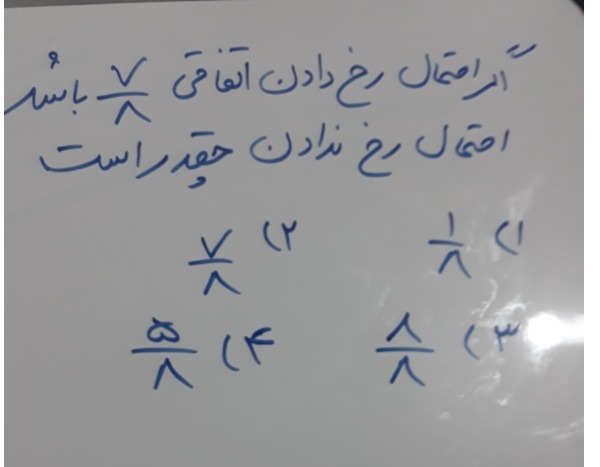 اگر احتمال رخ دادن اتفاقی ۷/۸ باشد
احتمال رخ ندادن چقدر است
۱) ۱/۸ ۲) ۷/۸
۳) ۸/۸ ۴) ۵/۸